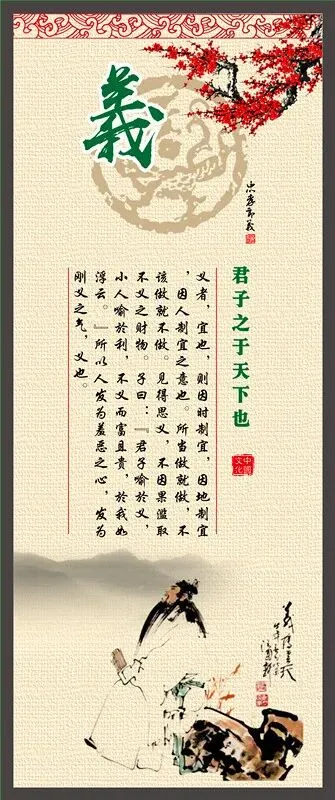 義
忠孝節義
君子之于天下也
中國
文化
义者，宜也，则因时制宜，因地制宜
，因人制宜之意也。所当做就做，不
该做就不做。见得思义，不因果滥取
不义之财物。子曰：『君子喻於义，
小人喻於利，不义而富且貴，於我如
浮云。』所以人发为羞恶之心，发为
刚义之气，义也。
義薄雲天